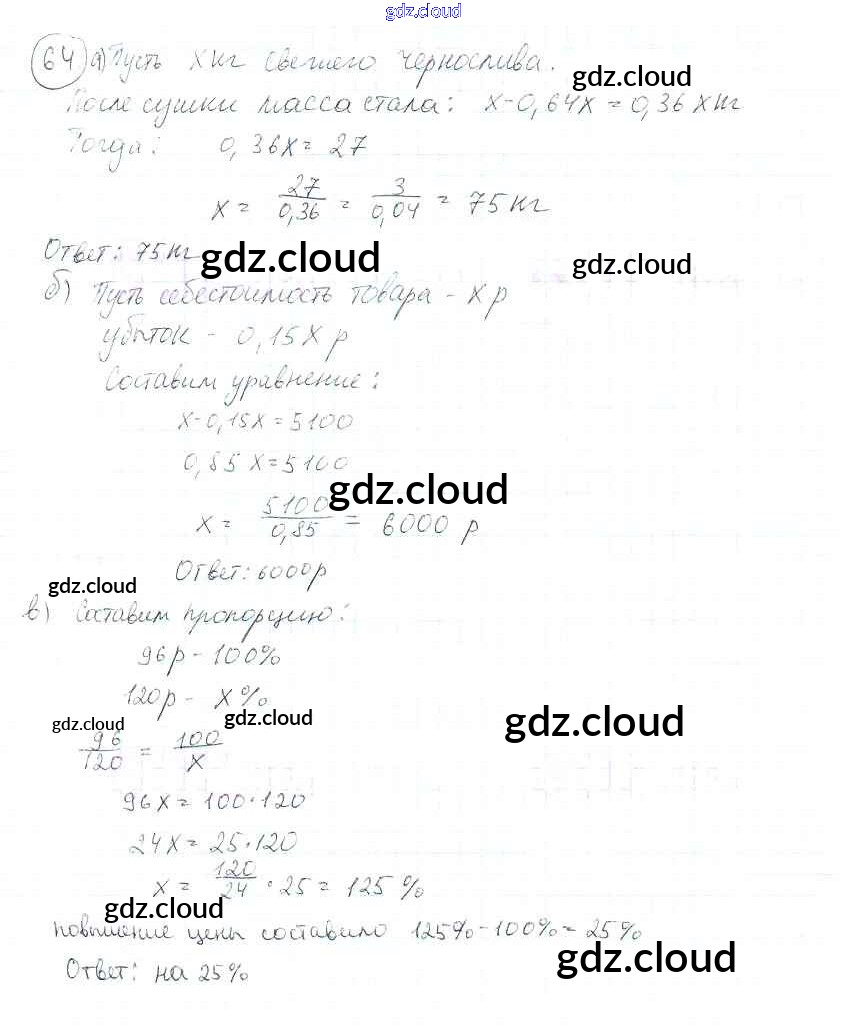 gdz.cloud
64 а) Пусть х кг свежего чернослива.
gdz.cloud
После сушки масса стала: х-0,64х = 0,36 х кг
Тогда: 0,36х = 27
х = 27/0,36 = 3/0,04 = 75 кг
Ответ: 75 кг
gdz.cloud gdz.cloud
б) Пусть себестоимость товара - х р
убыток - 0,15х р
Составим уравнение:
х-0,15х=5100
0,85 х=5100
gdz.cloud
х = 5100/0,85 = 6000 р
Ответ: 6000р
gdz.cloud
в) Составим пропорцию:
96р - 100%
120р - х %
gdz.cloud gdz.cloud gdz.cloud
96/120 = 100/х
96х = 100·120
24х = 25·120
х = 120/24 · 25 = 125 %
gdz.cloud
повышение цены составило 125%-100%=25%
gdz.cloud
Ответ: на 25%